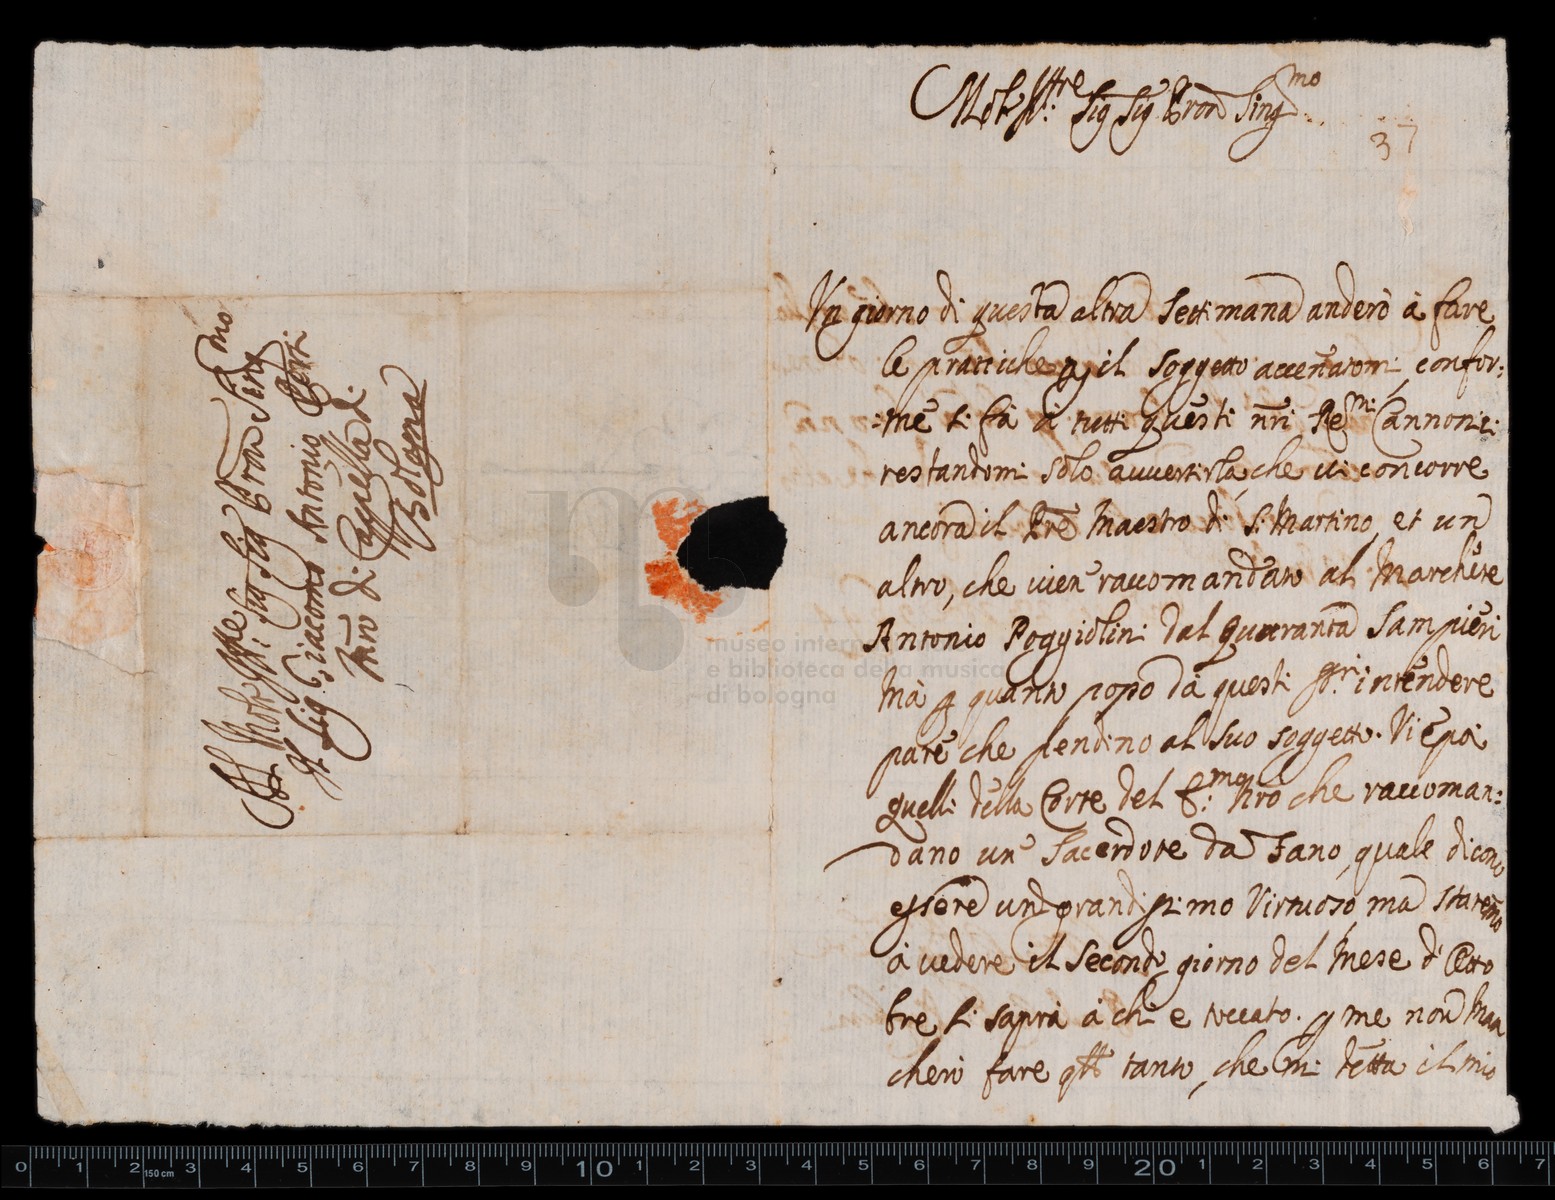 Al Molt' Ill.re Sig Sig Pron Sing.mo
Il Sig Giacomo Antonio Perti
Mro di Cappella di
Bologna
Molt' Ill.re Sig Sig Pron Sing.mo
37
Un giorno di questa altra settimana anderò à fare
le prattiche p il soggetto accenatomi, confor:
:me si fà à tutti questi nri Re.mi Cannonici
restandomi solo avvertirla, che vi concorre
ancora il Pre Maestro di S. Martino, et un
altro, che vien raccomandato al Marchese
Antonio Poggiolini dal Quaranta Sampieri
Mà p quanto posso da questi SS.ri intendere
pare che pendino al suo soggetto. Vi è poi
quelli della Corte del E.mo Nro che raccoman:
dano un Sacerdote da Fano, quale dicono
essere un grandissimo Virtuoso, ma staremo
à vedere il secondo giorno del Mese d'Otto
bre si saprà à chi e toccato. p me non Man
cherò fare qllo tanto, che mi detta il mio
museo intern
e biblioteca della musica
di bologna
0 1 2 150 cm 3 4 5 6 7 8 9 10 1 2 3 4 5 6 7 8 9 20 1 2 3 4 5 6 7